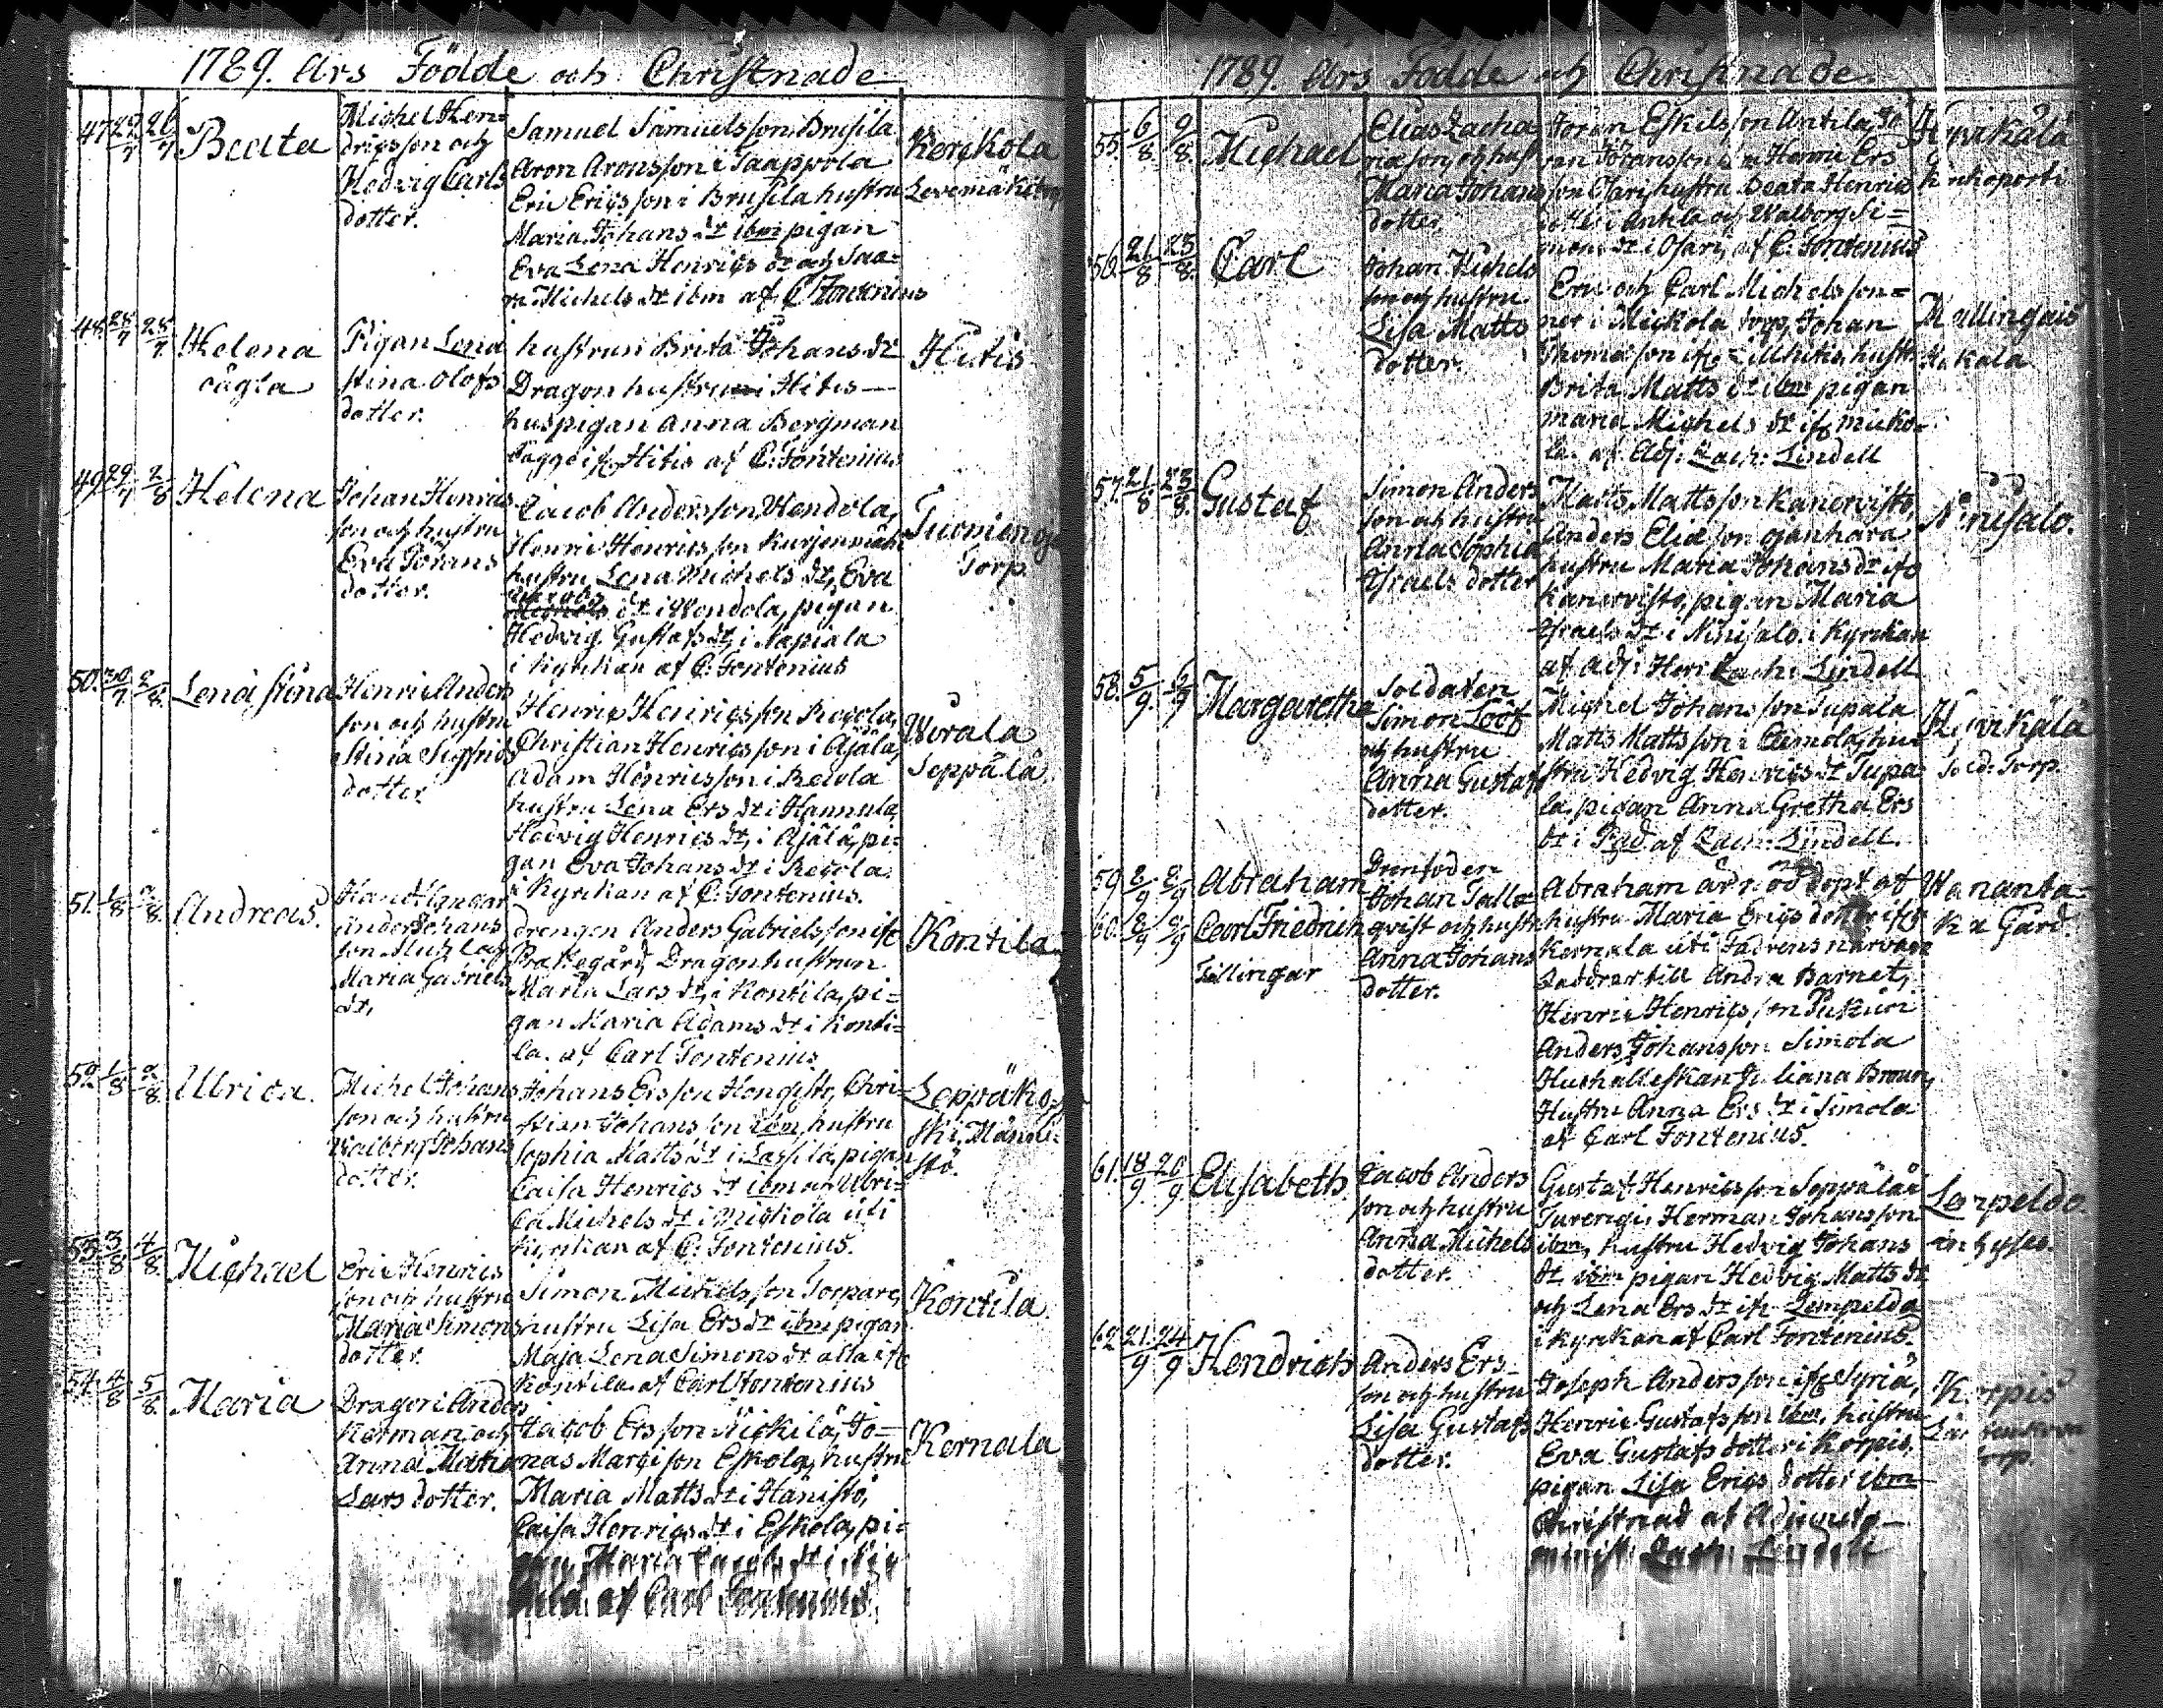 1789. Års Födde och Christnade
47 25/7 26/7 Beata
Michel Hen=
drigsson och
Hedvig Carls
dotter.
Samuel Samuelsson Brusila
Aron Aronsson i Saappola
Eric Ericsson i Brusila hustru
Maria Johans dr ibm pigan
Eva Lena Henrics dr och Saa=
ra Michels dr ibm af C Fontenius
Kerckola
48. 28/7 28/7. Helena
oägta
Pigan Lena
Stina Olofs
dotter.
hustrun Brita Johans dr
Dragon hustru i Hitis
huspigan Anna Bergman
bägge ifr Hitis af C: Fontenius
Hitis
49. 29/7 2/8 Helena
Johan Henrics
son och hustru
Eva Johans
dotter.
Jacob Andersson Wendola,
Henric Henricsson Kurjenmäki
hustru Lena Michels dr, Eva
Jacobs
dr i Wendola, pigan
Hedvig Gustafs dr, i Napiala
i Kyrckan af C: Fontenius
Tuomienoja
Torp.
50. 30/7 2/8. Lena Stina
Henric Anders
son och hustru
Stina Sigfrids
dotter
Henric Henricsson Recola,
Christian Henricsson i Äjälä,
Adam Henricsson i Recola
hustru Lena Ers dr i Hannula,
Hedvig Henrics dr, i Äjälä, pi=
gan Eva Johans dr i Recola.
i Kyrckan af C: Fontenius.
Wirala
Seppälä
51. 1/8 2/8. Andreas.
Anders Johans
son
Maria Gabriels
dr,
drengen Anders Gabrielsson ifr
Prästegård, Dragon hustrun
Maria Lars dr, i Kontila, pi=
gan Maria Adams dr i Konti=
la. af Carl Fontenius
Kontila
52. 1/8 2/8. Ulrica.
Michel Johans
son och hustru
Walborg Johans
dotter.
Johans Ersson Hongisto, Chri=
stian Johansson ibm, hustru
Sophia Matts dr i Lassila, pigan
Caisa Henrics dr ibm och Ulri=
ca Michels dr i Mickola uti
Kyrckan af C: Fontenius.
Leppäko=
ski, Männi=
stö.
53. 3/8 4/8. Michael
Eric Henrics
son och hustru
Maria Simons
dotter.
Simon Michelsson Torpare,
hustru Lisa Ers dr ibm pigan
Maja Lena Simons dr alla ifr
Kontila af Carl Fontenius
Kontila.
54. 4/8 5/8. Maria
Dragon Anders
Kerman och
Anna
Lars dotter.
Jacob Ersson Nickilä, Jo=
nas Marcisson Eskola, hustru
Maria Matts dr i Hänistö,
Caisa Henrics dr i Eskola, pi=
gan Maria Jacobs dr i Nic
kilä af Carl Fontenius.
Kernala
1789. Års Födde och Christnade.
55. 6/8. 9/8. Michael
Elias Zacha
riæson och hust
Maria Johans
dotter.
Göran Eskilsson Antila, Jö
ran Göransson Henric Ers
son Ojari, hustru Beata Henrics
dotter i Antila och Walborg Si=
mons dr. i Ojari, af C. Fontenius
Hyvikälä
56. 21/8 23/8. Carl
Johan Michels
son och hustru
Lisa Matts
dotter.
Eric och Carl Michelsson=
ner i Mickola torp, Johan
Thomasson ifr hustr
Brita Matts dr ibm pigan
Maria Michels dr ifr Micko=
la. af Adj: Zach: Lindell
Mallingais
Hakala
57. 21/8 23/8. Gustaf
Simon Anders
son och hustru
Anna Sophia
Israels dotter
Matts Mattsson Kanervisto,
Anders Eliæson Ojanhara
hustru Maria Johans dr ifr
Kanervisto, pigan Maria
Israels dr i Ninisalo. i Kyrckan
af Adj: Herr Zach: Lindell
Ninisalo.
58. 5/9. 6/9 Margaretha
Soldaten
Simon Lööf
och hustru
Anna Gustafs
dotter.
Michel Johansson Tupala
Matts Mattsson i Eimola, hu=
stru Hedvig Henrics dr Tupa
la, pigan Anna Gretha Ers
dr i af Zach: Lindell.
Hyvikälä
Sold: Torp.
59. 8/9 8/9 Abraham
60. 8/9 9/9 Carl Friedrich
Tillingar
Johan Talle
qvist och hustru
Anna Johans
dotter.
Abraham är nöddöpt af
hustru Maria Erics dotter ifr
Kernala uti Fadrens närvaro
Faddrar till Andra Barnet,
Henric Henricsson Pukuri
Anders Johansson Simola
Hushållerskan Juliana Broun,
Hustru Anna Ers dr i Simola
af Carl Fontenius.
Wananta=
ka Gård.
61. 18/9 20/9 Elisabeth.
Jacob Anders
son och hustru
Anna Michels
dotter.
Gustaf Henricsson Seppälä i
Turengi, Herman Johansson
ibm, hustru Hedvig Johans
dr ibm pigan Hedvig Matts dr
och Lena Ers dr ifr Lempelda
i Kyrckan af Carl Fontenius.
62 21/9 24/9 Hendrich
Anders Ers
son och hustru
Lisa Gustafs
dotter.
Joseph Andersson ifr Syriä,
Henric Gustafsson ibm, hustru
Eva Gustafs dotter i Korpis,
pigan Lisa Erics dotter ibm
Christnad af Adjuncts
minist: Zach: Lindell
Korpis